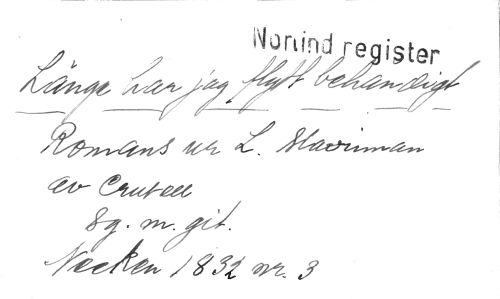 Norlind register
Länge har jag flytt behändigt
Romans ur L. Slavinnan
av Crusell
Sg. m. git.
Necken 1832 nr. 3